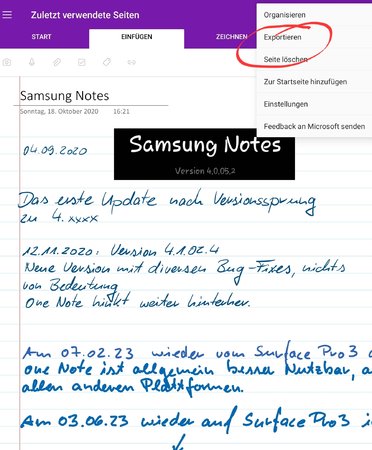 Zuletzt verwendete Seiten
START
EINFÜGEN
ZEICHNEN
Organisieren
Exportieren
Seite löschen
Zur Startseite hinzufügen
Einstellungen
Feedback an Microsoft senden
Samsung Notes
Sonntag, 18. Oktober 2020 16:21
04.09.2020
Samsung Notes
Version 4.0.05.2
Das erste Update nach Versionssprung
zu 4.xxxx
12.11.2020: Version 4.1.02.4
Neue Version mit diversen Bug-Fixes, nichts
von Bedeutung
One Note hinkt weiter hinterher.
Am 07.02.23 wieder vom Surface Pro3
One Note ist allgemein besser Nutzbar, a
allen anderen Plattformen.
Am 03.06.23 wieder auf Surface Pro3 i